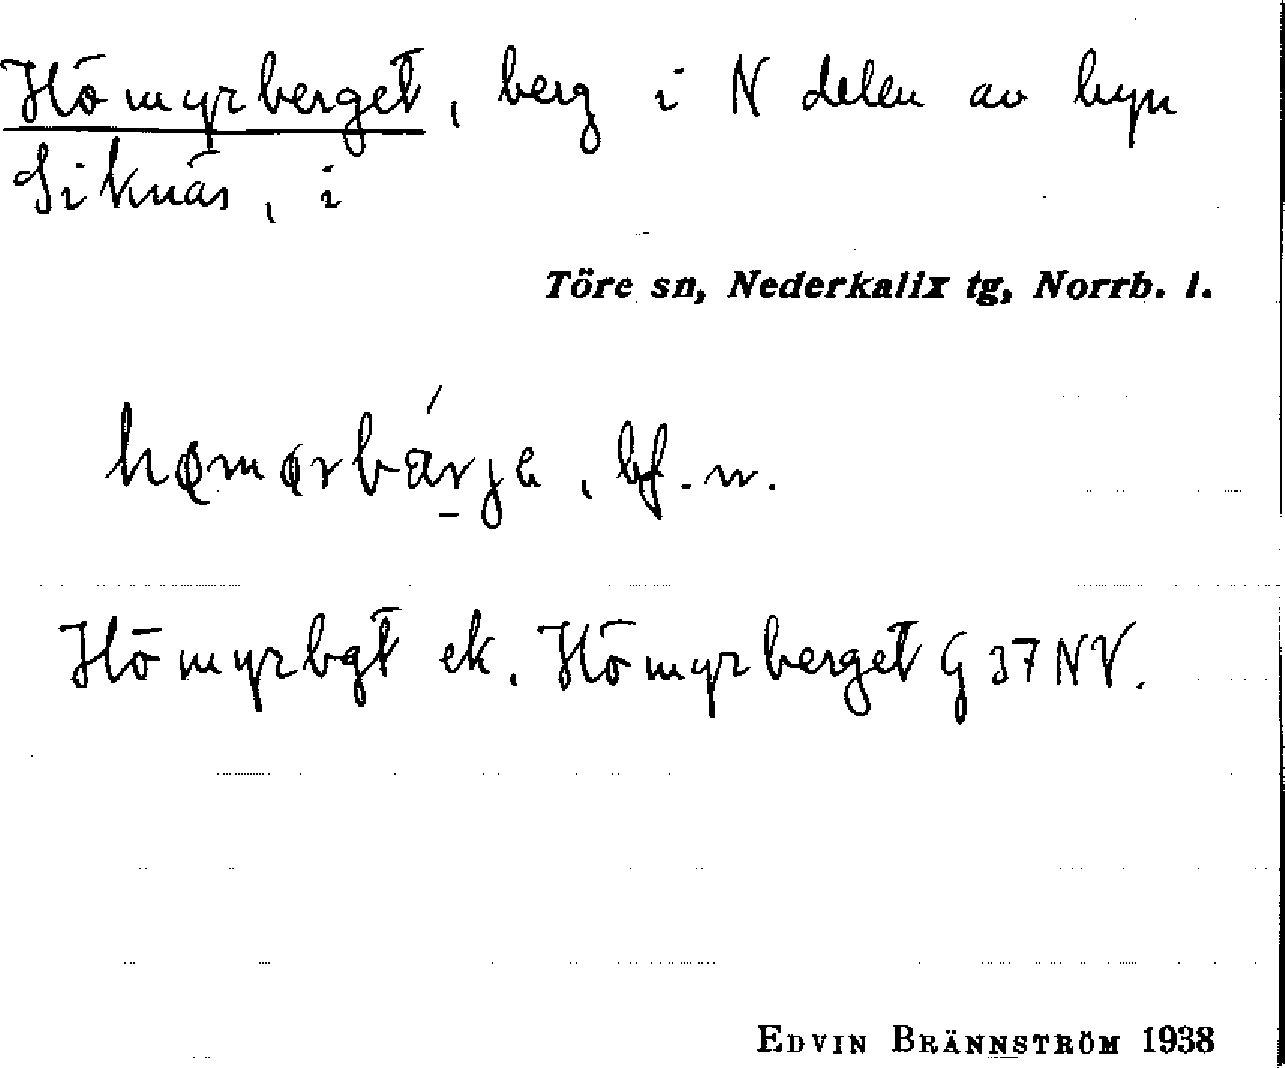 Hömyrberget, berg i N delen av byn
Siknäs, i
Töre sn, Nederkalix tg, Norrb. l.
bf. n.
Hömyrbgt ek. Hömyrberget G 37 NV.
EDVIN BRÄNNSTRÖM 1938